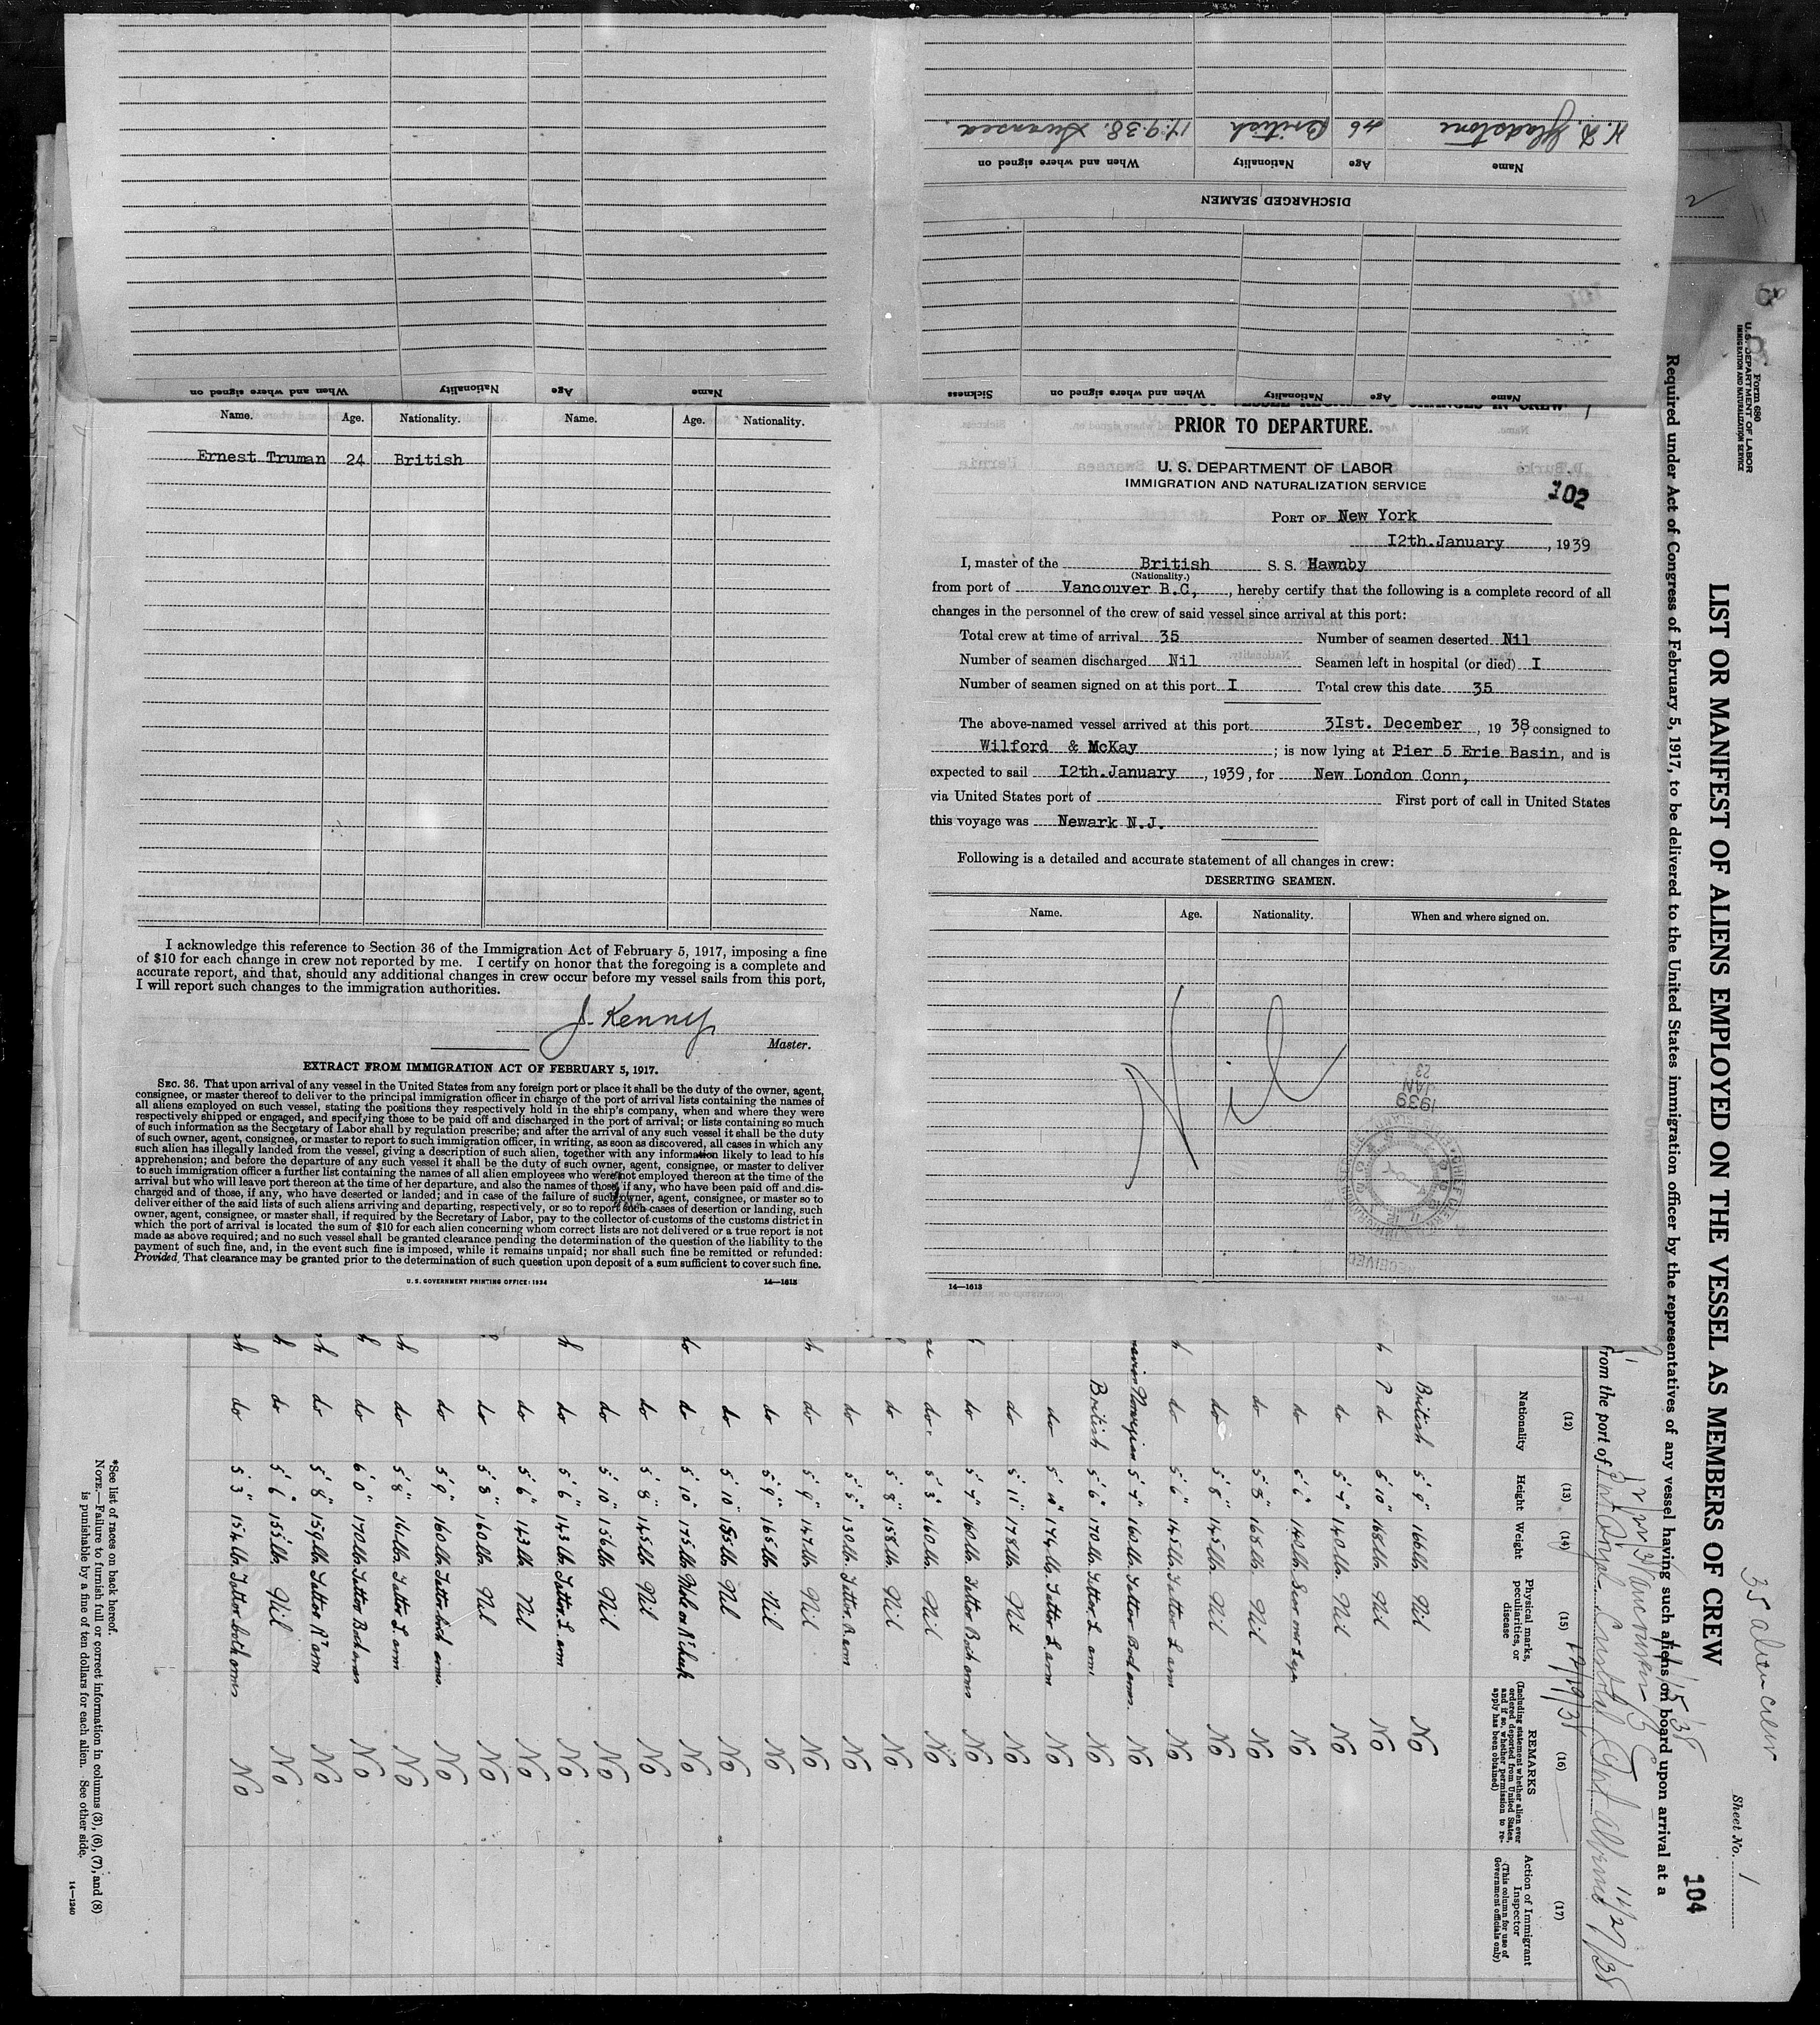 H. D. Gladstone 46 British 17.9.38. Swansea.
Name Age Nationality When and where signed on
DISCHARGED SEAMEN
Name Age Nationality When and where signed on
Name Age Nationality When and where signed on Sickness
Name. Age. Nationality. Name. Age. Nationality.
Ernest Truman 24 British
I acknowledge this reference to Section 36 of the Immigration Act of February 5, 1917, imposing a fine
of $10 for each change in crew not reported by me. I certify on honor that the foregoing is a complete and
accurate report, and that, should any additional changes in crew occur before my vessel sails from this port,
I will report such changes to the immigration authorities.
J. Kenny
Master.
EXTRACT FROM IMMIGRATION ACT OF FEBRUARY 5, 1917.
SEC. 36. That upon arrival of any vessel in the United States from any foreign port or place it shall be the duty of the owner, agent,
consignee, or master thereof to deliver to the principal immigration officer in charge of the port of arrival lists containing the names of
all aliens employed on such vessel, stating the positions they respectively hold in the ship's company, when and where they were
respectively shipped or engaged, and specifying those to be paid off and discharged in the port of arrival; or lists containing so much
of such information as the Secretary of Labor shall by regulation prescribe; and after the arrival of any such vessel it shall be the duty
of such owner, agent, consignee, or master to report to such immigration officer, in writing, as soon as discovered, all cases in which any
such alien has illegally landed from the vessel, giving a description of such alien, together with any information likely to lead to his
apprehension; and before the departure of any such vessel it shall be the duty of such owner, agent, consignee, or master to deliver
to such immigration officer a further list containing the names of all alien employees who were not employed thereon at the time of the
arrival but who will leave port thereon at the time of her departure, and also the names of those, if any, who have been paid off and dis-
charged and of those, if any, who have deserted or landed; and in case of the failure of such owner, agent, consignee, or master so to
deliver either of the said lists of such aliens arriving and departing, respectively, or so to report such cases of desertion or landing, such
owner, agent, consignee, or master shall, if required by the Secretary of Labor, pay to the collector of customs of the customs district in
which the port of arrival is located the sum of $10 for each alien concerning whom correct lists are not delivered or a true report is not
made as above required; and no such vessel shall be granted clearance pending the determination of the question of the liability to the
payment of such fine, and, in the event such fine is imposed, while it remains unpaid; nor shall such fine be remitted or refunded:
Provided, That clearance may be granted prior to the determination of such question upon deposit of a sum sufficient to cover such fine.
U. S. GOVERNMENT PRINTING OFFICE: 1934 14—1613
PRIOR TO DEPARTURE.
U. S. DEPARTMENT OF LABOR
IMMIGRATION AND NATURALIZATION SERVICE
102
PORT OF New York
I2th.January, 1939
I, master of the British S. S. Hawnby
(Nationality.)
from port of Vancouver B.C, , hereby certify that the following is a complete record of all
changes in the personnel of the crew of said vessel since arrival at this port:
Total crew at time of arrival 35 Number of seamen deserted Nil
Number of seamen discharged Nil Seamen left in hospital (or died) I
Number of seamen signed on at this port I Total crew this date 35
The above-named vessel arrived at this port 3Ist. December , 1938, consigned to
Wilford & McKay ; is now lying at Pier 5 Erie Basin, and is
expected to sail I2th.January , 1939, for New London Conn,
via United States port of First port of call in United States
this voyage was Newark N.J.
Following is a detailed and accurate statement of all changes in crew:
DESERTING SEAMEN.
Name. Age. Nationality. When and where signed on.
Nil
1939
JAN
23
RECEIVED
14—1613
Form 680
U. S. DEPARTMENT OF LABOR
IMMIGRATION AND NATURALIZATION SERVICE
35 alien crew
Sheet No. 1
104
LIST OR MANIFEST OF ALIENS EMPLOYED ON THE VESSEL AS MEMBERS OF CREW
Required under Act of Congress of February 5, 1917, to be delivered to the United States immigration officer by the representatives of any vessel having such aliens on board upon arrival at a
from the port of
(12) (13) (14) (15) (16) (17)
Nationality Height Weight Physical marks, peculiarities, or disease REMARKS (Including statement whether alien ever ordered deported from United States, and if so, whether permission to reapply has been obtained) Action of Immigrant Inspector (This column for use of Government officials only)
British 5' 9" 166 lb. Nil No
do 5' 10" 168 lb. Nil No
do 5' 7" 140 lb. Nil No
do 5' 6" 140 lb. No
do 5' 8" 168 lb. Nil No
do 5' 8" 145 lb. Nil No
do 5' 6" 145 lb. Tattoo L arm No
Norwegian 5' 7" 160 lb. No
British 5' 6" 170 lb. Tattoo L arm No
do 174 lb. Tattoo L arm No
do 5' 11" 178 lb. Nil No
do 5' 7" 160 lb. Tattoo Both arms No
do 5' 3" 160 lb. Nil No
do 5' 8" 158 lb. Nil No
do 5' 5" 130 lb. Tattoo R arm No
do 5' 9" 147 lb. Nil No
do 5' 9" 165 lb. Nil No
do 5' 10" 155 lb. Nil No
do 5' 10" 175 lb. Mole on R cheek No
do 5' 8" 145 lb. Nil No
do 5' 10" 156 lb. Nil No
do 5' 6" 143 lb. Tattoo L arm No
do 5' 6" 143 lb. Nil No
do 5' 8" 160 lb. Nil No
do 5' 9" 160 lb. Tattoo both arms. No
do 5' 8" 161 lb. Tattoo L arm No
do 6' 0" 170 lb. Tattoo Both arms No
do 5' 8" 159 lb. Tattoo R arm No
do 5' 6" 155 lb. Nil No
do 5' 3" 154 lb. Tattoo both arms No
*See list of races on back hereof.
NOTE.—Failure to furnish full or correct information in columns (3), (6), (7), and (8)
is punishable by a fine of ten dollars for each alien. See other side.
14—1240